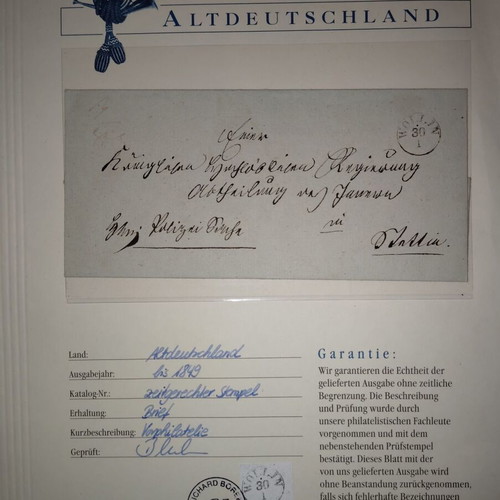 ALTDEUTSCHLAND
WOLLIN
30
1
Einer
Königlichen Hochlöblichen Regierung
Abtheilung des Innern
in
Polizei Sache
Stettin.
Land: Altdeutschland
Ausgabejahr: bis 1849
Katalog-Nr.: zeitgerechter Stempel
Erhaltung: Brief
Kurzbeschreibung: Vorphilatelie
Geprüft:
Garantie:
Wir garantieren die Echtheit der
gelieferten Ausgabe ohne zeitliche
Begrenzung. Die Beschreibung
und Prüfung wurde durch
unsere philatelistischen Fachleute
vorgenommen und mit dem
nebenstehenden Prüfstempel
bestätigt. Dieses Blatt mit der
von uns gelieferten Ausgabe wird
ohne Beanstandung zurückgenommen,
falls sich fehlerhafte Bezeichnungen
RICHARD BOREK
WOLLIN
30